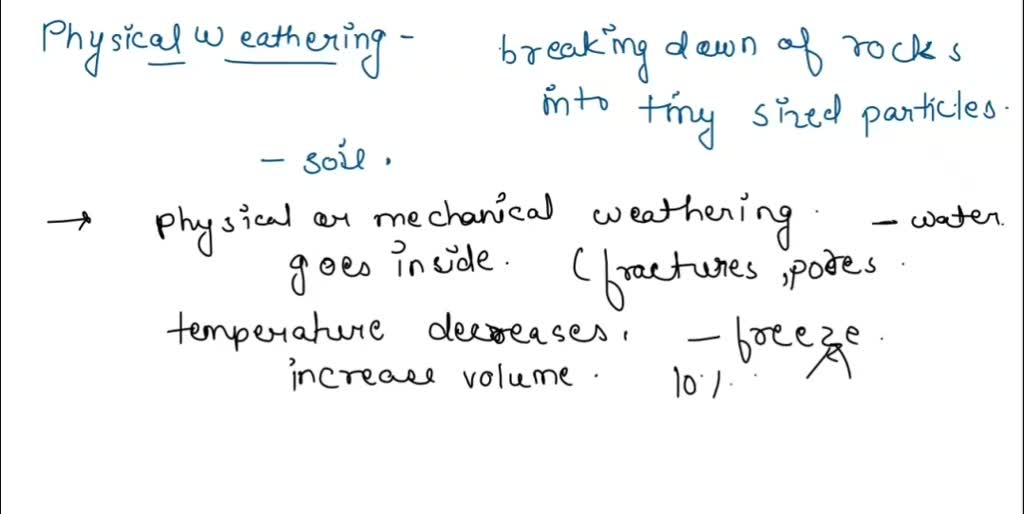 Physical Weathering - breaking down of rocks
into tiny sized particles.
- soil.
→ physical or mechanical weathering. - water.
goes inside. (fractures, pores.
temperature decreases. - freeze.
increase volume. 10%.